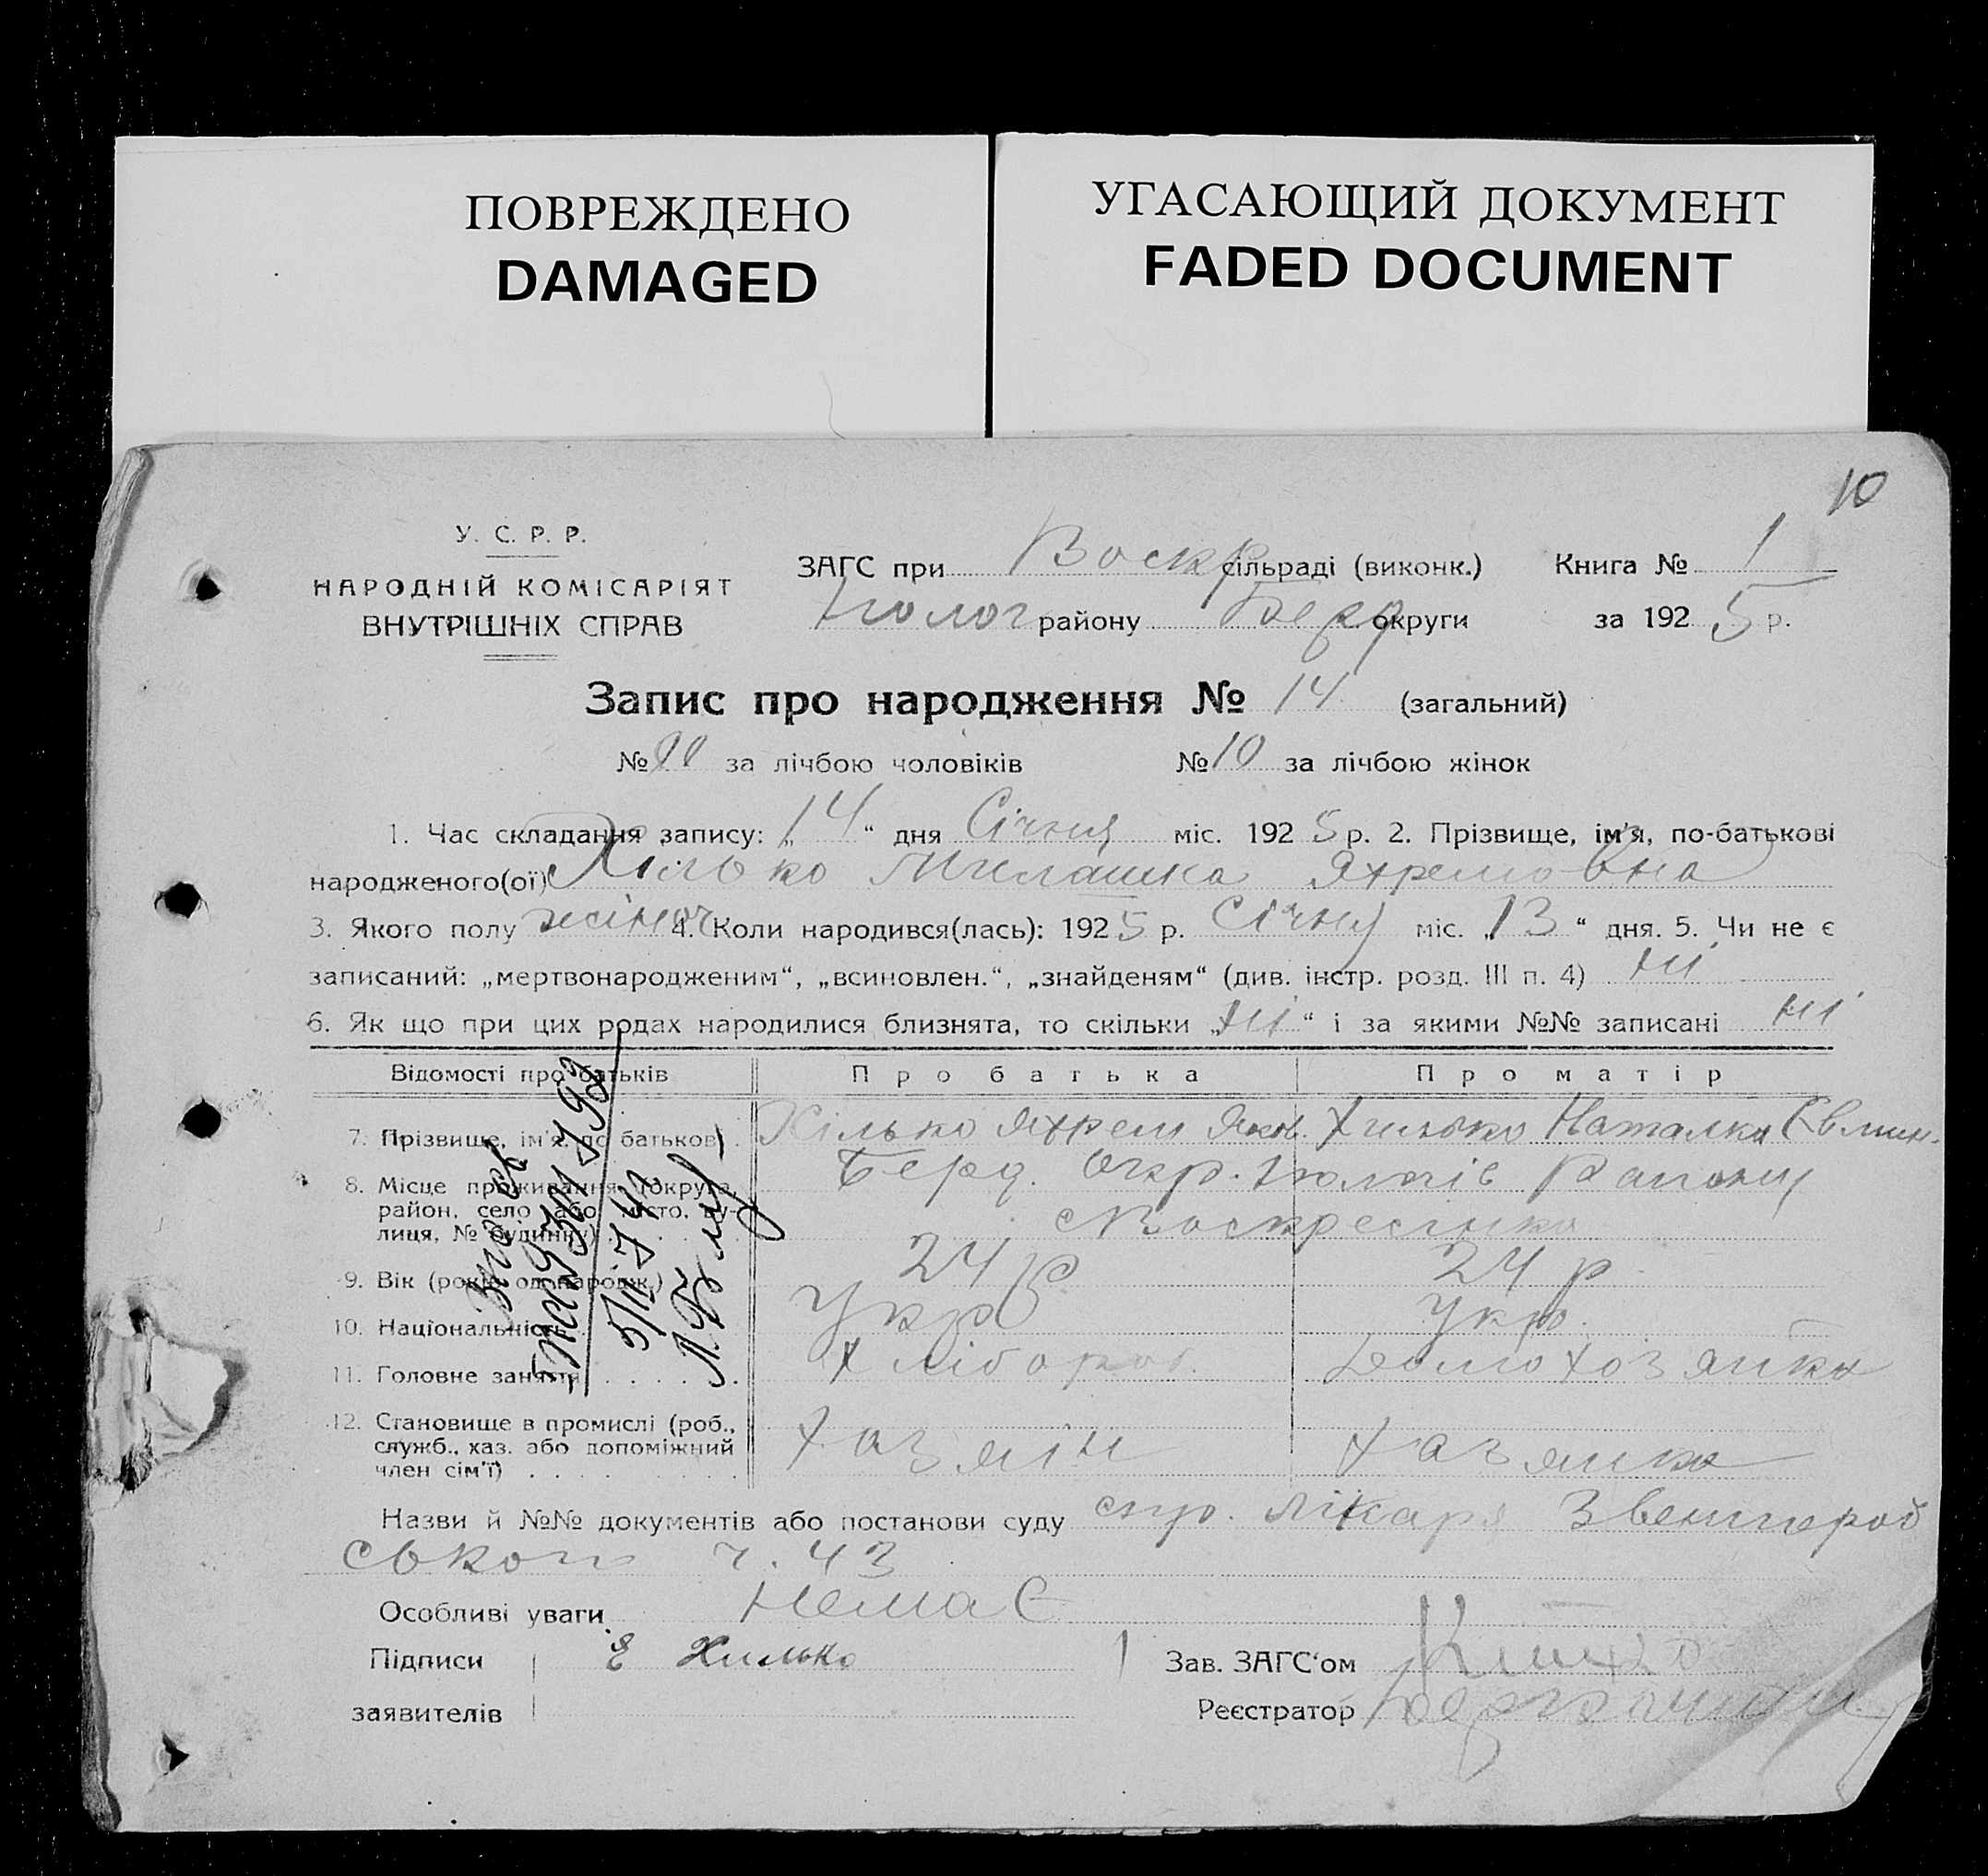 ПОВРЕЖДЕНО
DAMAGED
УГАСАЮЩИЙ ДОКУМЕНТ
FADED DOCUMENT
10
У. С. Р. Р.
НАРОДНІЙ КОМІСАРІЯТ
ВНУТРІШНІХ СПРАВ
ЗАГС при Воскр сільраді (виконк.) Книга № 1
Полог району Берд округи за 192 5 р.
Запис про народження № 14 (загальний)
№ за лічбою чоловіків № 10 за лічбою жінок
1. Час складання запису: „14“ дня Січня міс. 192 5 р. 2. Прізвище, ім'я, по-батькові
народженого(ої) Хілько Милашка Яхремовна
3. Якого полу жіноч 4. Коли народився(лась): 192 5 р. Січня міс. „13“ дня. 5. Чи не є
записаний: „мертвонародженим“, „всиновлен.“, „знайденям“ (див. інстр. розд. III п. 4) ні
6. Як що при цих родах народилися близнята, то скільки „ні“ і за якими №№ записані ні
Відомості про батьків Про батька Про матір
7. Прізвище, ім'я, по батькові Хілько Яхрем Яков. Хилько Наталка
8. Місце проживання (округа, район, село або місто, вулиця, № будинку) Берд. Окр. Пологів Району
Воскресенка
9. Вік (років од народж.) 24 р 24 р
10. Національність Укр Укр.
11. Головне заняття Хлібороб. Домохозяйка
12. Становище в промислі (роб.,
служб., хаз. або допоміжний
член сім'ї) Хазяін Хазяйка
Назви й №№ документів або постанови суду спр. лікаря Звенигород
ського ч. 43
Особливі уваги Немає
Підписи Е Хилько Зав. ЗАГС'ом
заявителів Реєстратор